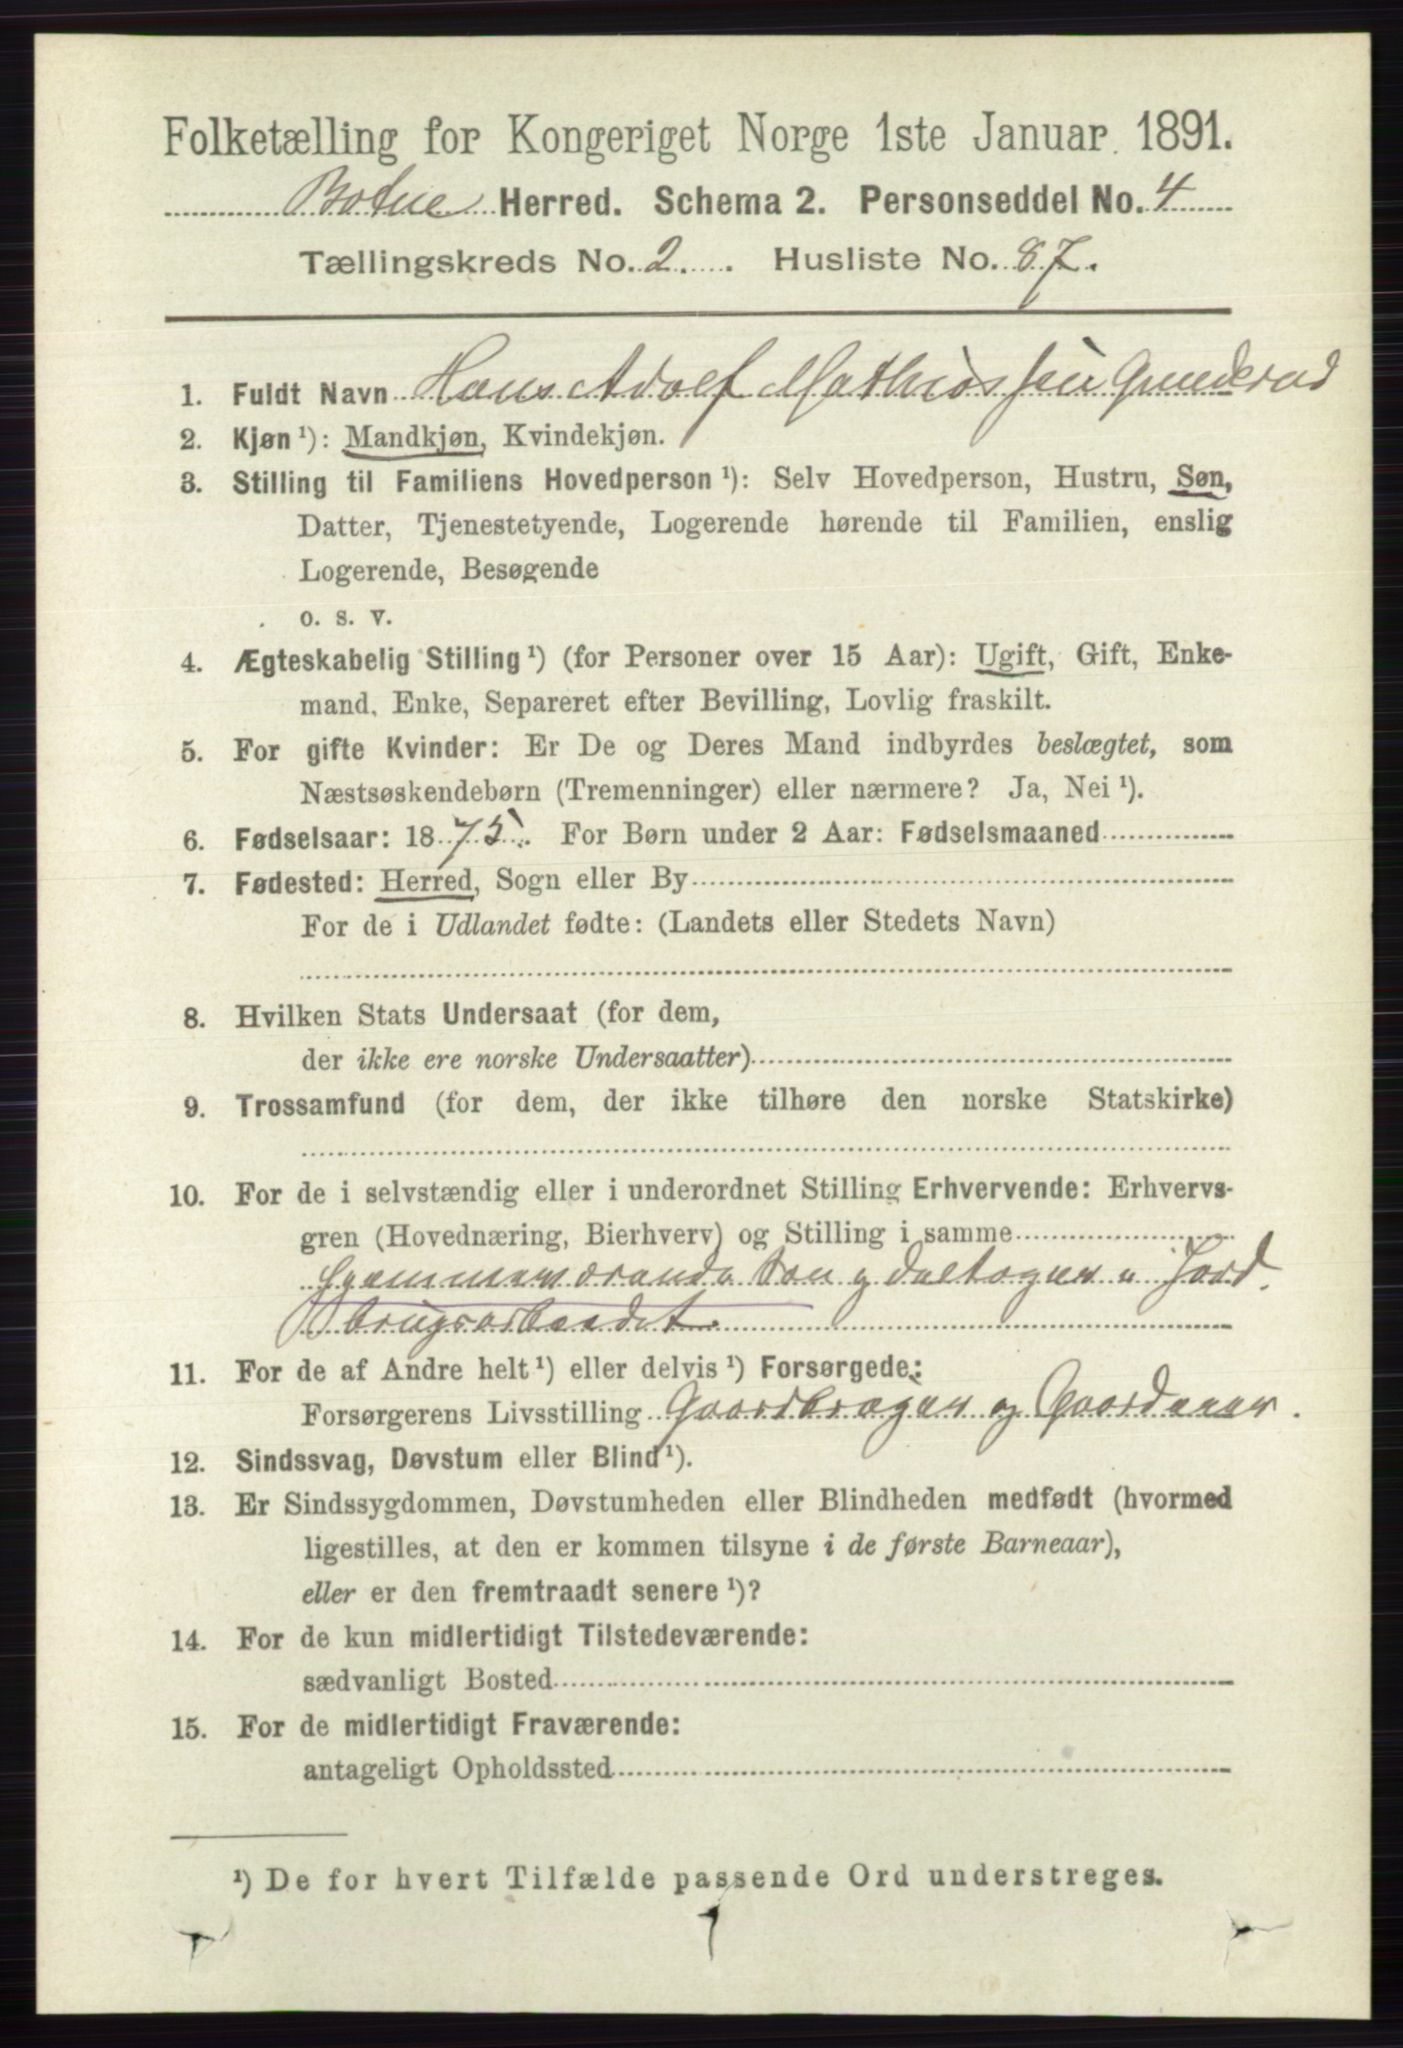 Folketælling for Kongeriget Norge 1ste Januar 1891.
Botne Herred. Schema 2. Personseddel No. 4
Tællingskreds No. 2. Husliste No. 87.
1. Fuldt Navn Hans Adolf Mathiassen Gunderød
2. Kjøn ¹): Mandkjøn, Kvindekjøn.
3. Stilling til Familiens Hovedperson ¹): Selv Hovedperson, Hustru, Søn,
Datter, Tjenestetyende, Logerende hørende til Familien, enslig
Logerende, Besøgende
o. s. v.
4. Ægteskabelig Stilling ¹) (for Personer over 15 Aar): Ugift, Gift, Enke-
mand, Enke, Separeret efter Bevilling, Lovlig fraskilt.
5. For gifte Kvinder: Er De og Deres Mand indbyrdes beslægtet, som
Næstsøskendebørn (Tremenninger) eller nærmere? Ja, Nei ¹).
6. Fødselsaar: 1875. For Børn under 2 Aar: Fødselsmaaned
7. Fødested: Herred, Sogn eller By
For de i Udlandet fødte: (Landets eller Stedets Navn)
8. Hvilken Stats Undersaat (for dem,
der ikke ere norske Undersaatter)
9. Trossamfund (for dem, der ikke tilhøre den norske Statskirke)
10. For de i selvstændig eller i underordnet Stilling Erhvervende: Erhvervs-
gren (Hovednæring, Bierhverv) og Stilling i samme
hjemmeværende Søn og deltager i Jord
brugsarbeidet.
11. For de af Andre helt ¹) eller delvis ¹) Forsørgede:
Forsørgerens Livsstilling Gaardbruger og Gaardeier.
12. Sindssvag, Døvstum eller Blind ¹).
13. Er Sindssygdommen, Døvstumheden eller Blindheden medfødt (hvormed
ligestilles, at den er kommen tilsyne i de første Barneaar),
eller er den fremtraadt senere ¹)?
14. For de kun midlertidigt Tilstedeværende:
sædvanligt Bosted
15. For de midlertidigt Fraværende:
antageligt Opholdssted
¹) De for hvert Tilfælde passende Ord understreges.